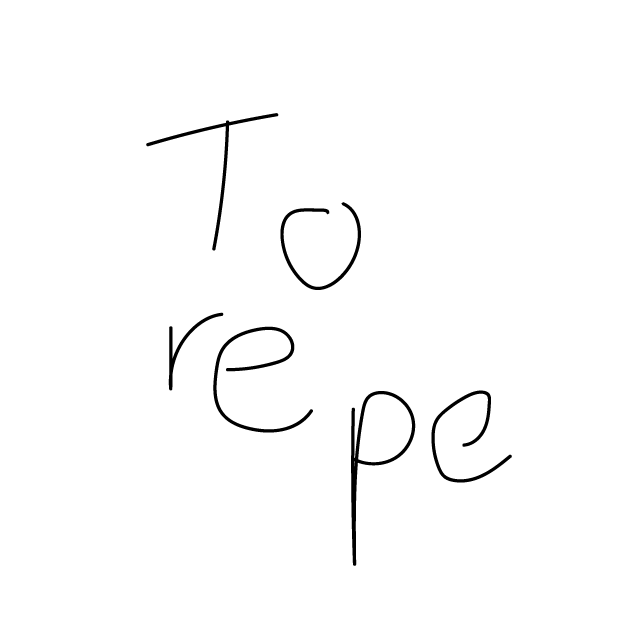 To
repe